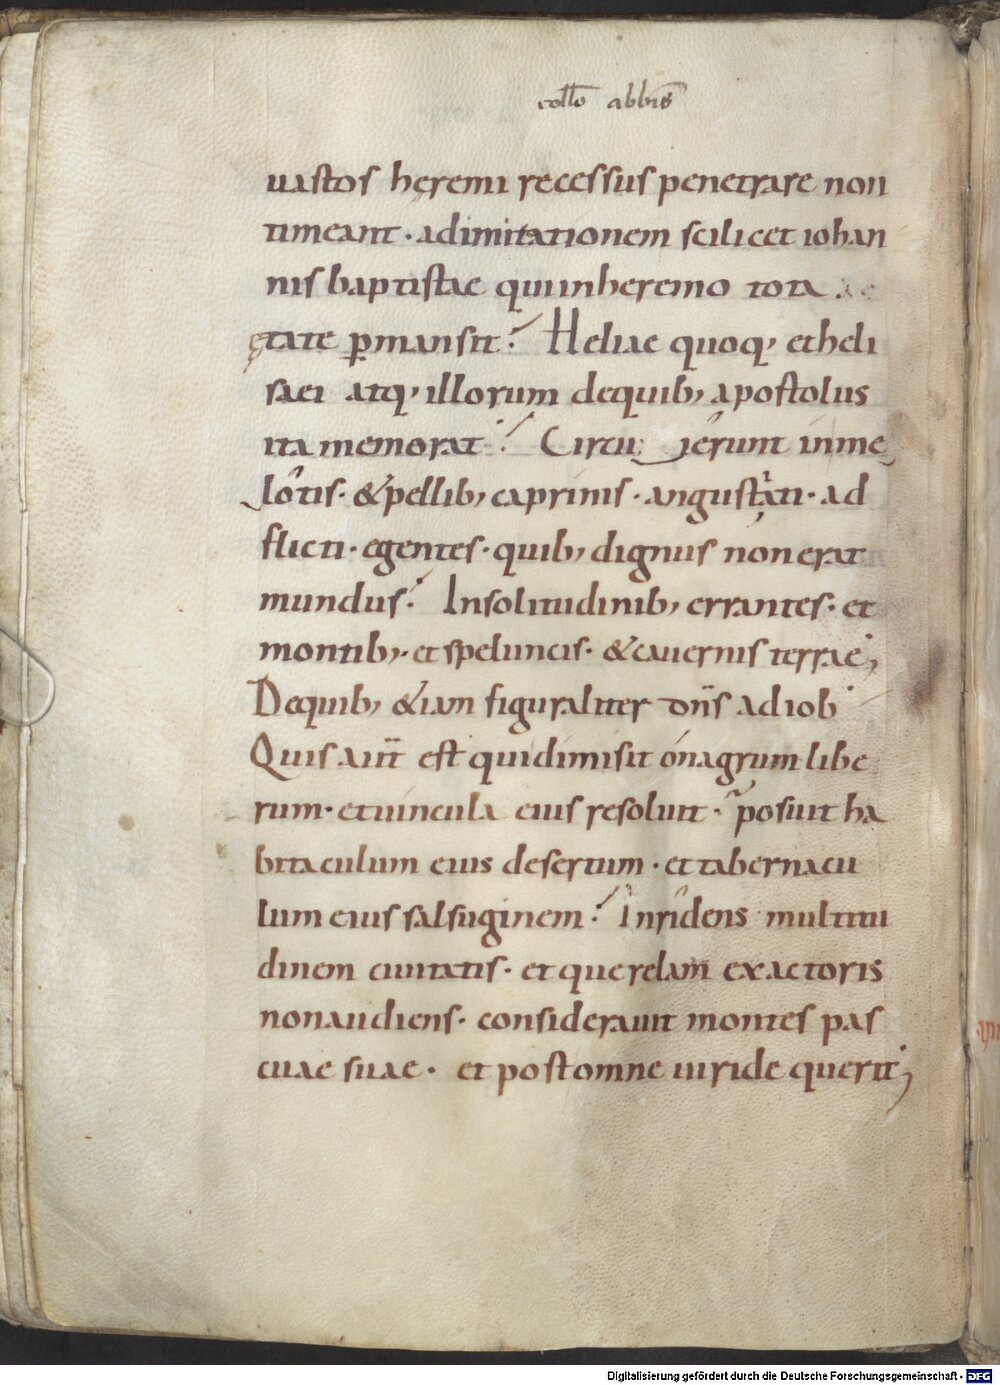 collo abbis
uastos heremi recessus penetrare non
timeant · adimitationem scilicet iohan
nis baptistae quiinheremo tota
ętate ꝑmansit · Heliae quoq; etheli
saei atq; illorum dequib; apostolus
ita memorat · Circu ierunt inme
lotis · &pellib; caprinis · angustati · ad
flicti · egentes · quib; dignus non erat
mundus · Insolitudinib; errantes · et
montib; · et speluncis · &cauernis terrae;
Dequib; &iam figuraliter dn̄s adiob
Quis aūt est quidimisit onagrum libe
rum · etuincula eius resoluit · posuit ha
bitaculum eius desertum · et tabernacu
lum eius salsuginem · Inridens multitu
dinem ciuitatis · et querelam exactoris
nonaudiens · considerauit montes pas
cuae suae · et postomne uiride querit;
Digitalisierung gefördert durch die Deutsche Forschungsgemeinschaft - DFG